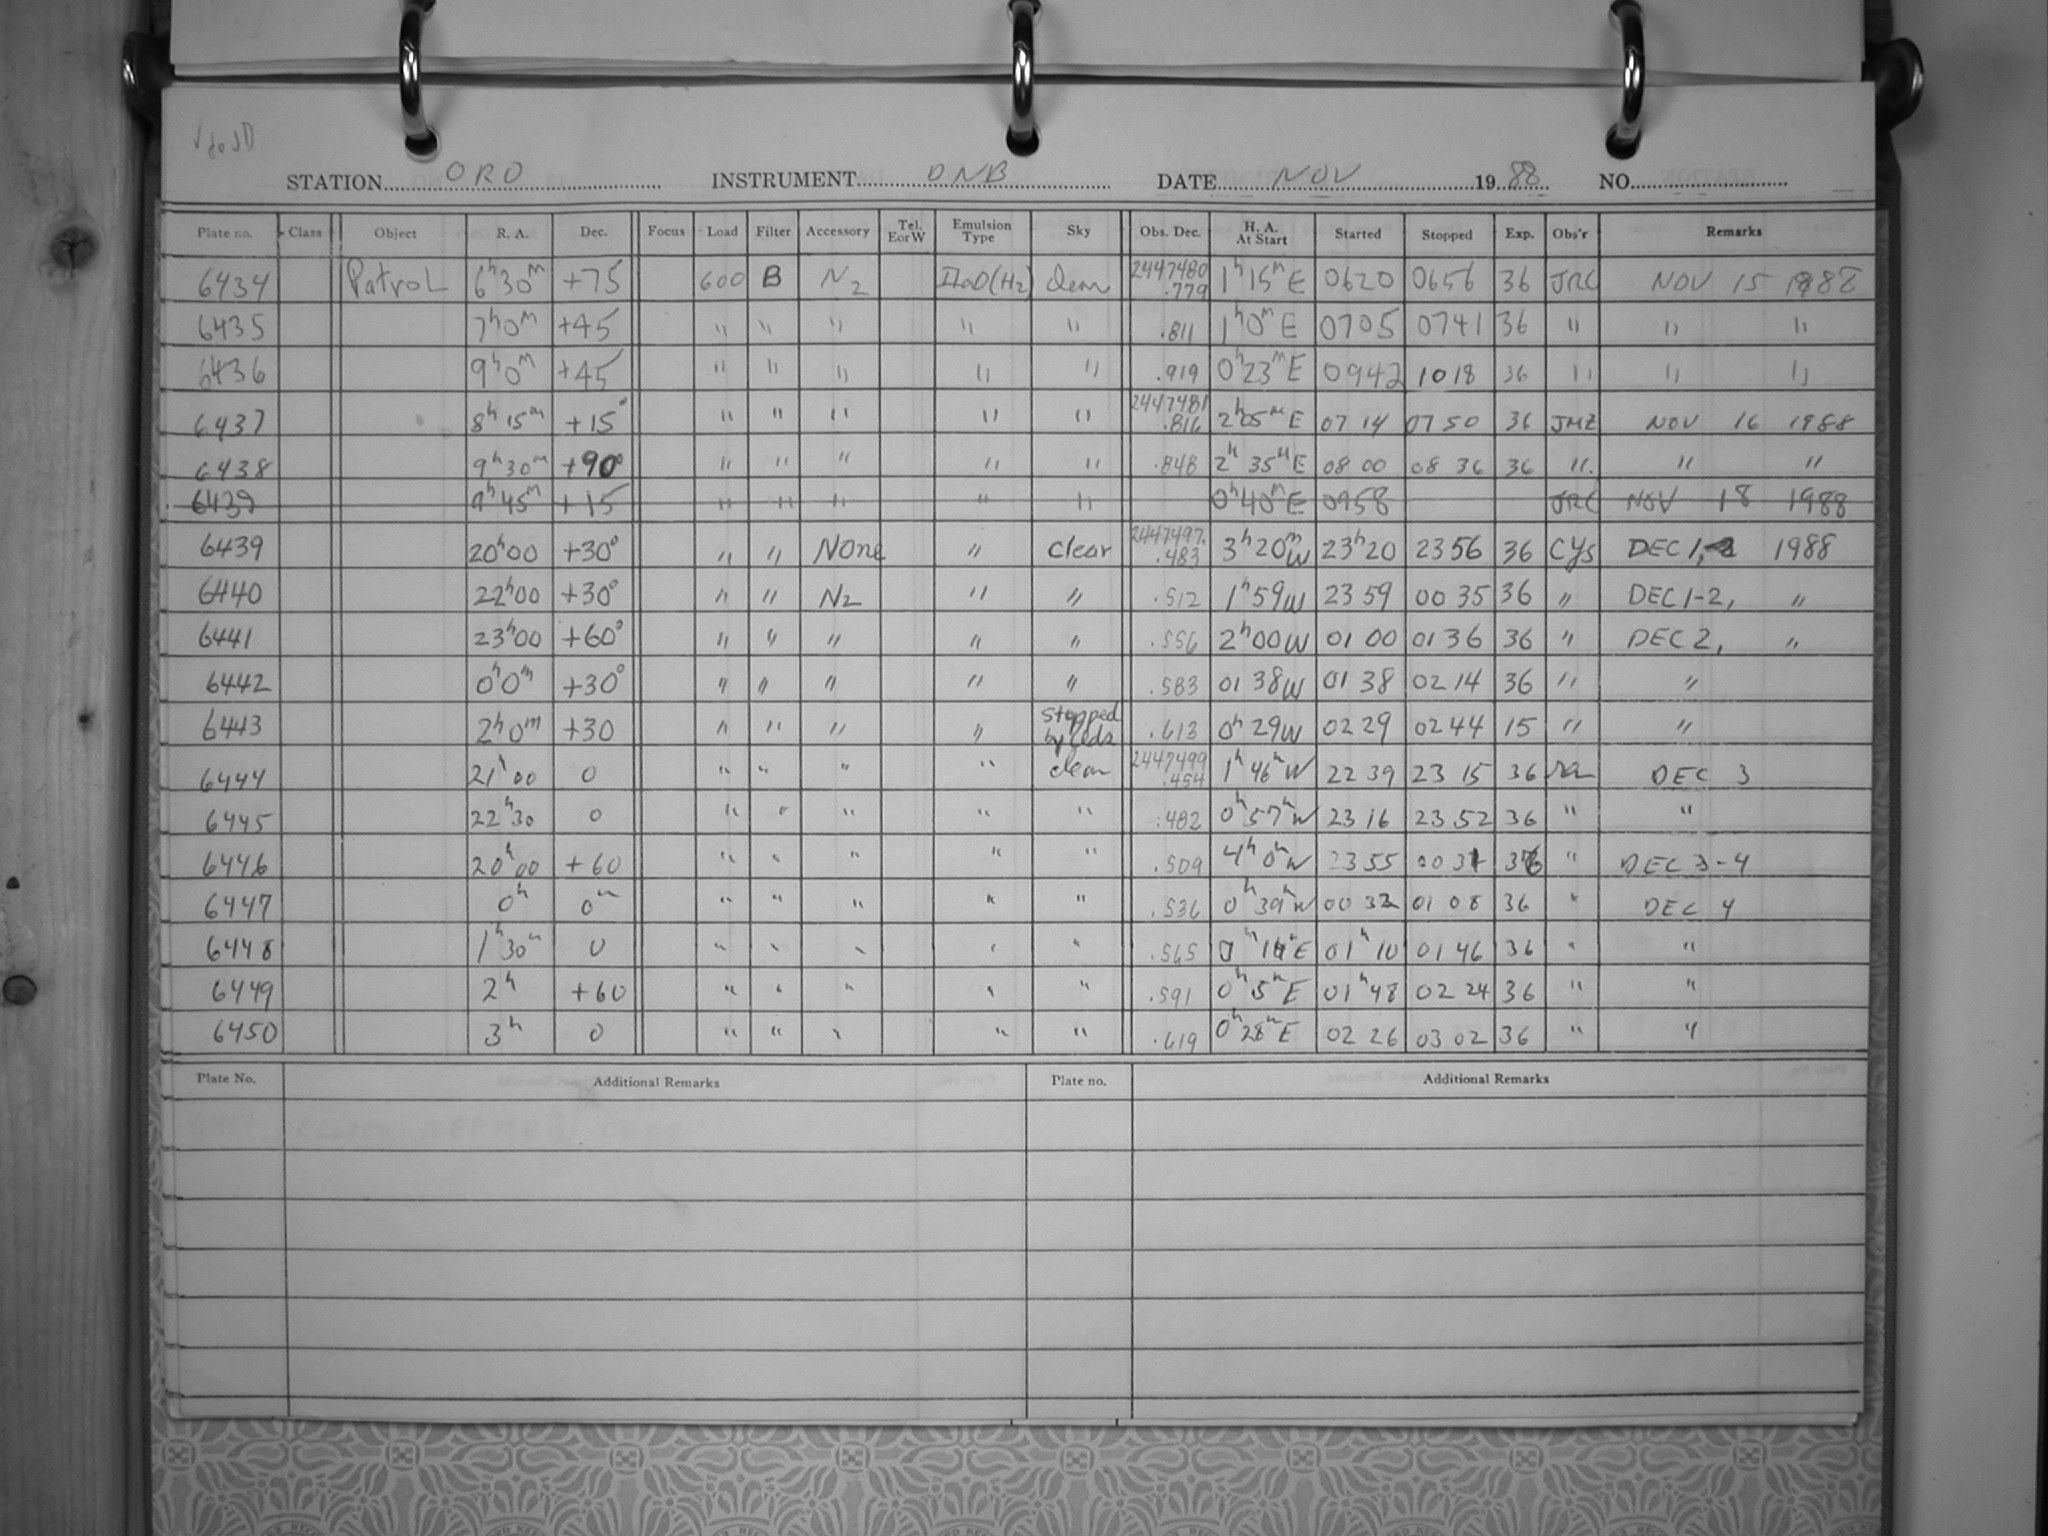 STATION ORO INSTRUMENT DNB DATE NOV 1988 NO.
Plate no. Class Object R. A. Dec. Focus Load Filter Accessory Tel. EorW Emulsion Type Sky Obs. Dec. H. A. At Start Started Stopped Exp. Obs'r Remarks
6434 Patrol 6h30m +75 600 B N2 IIaO(H2) clear 2447480 .779 1h15mE 0620 0656 36 JRC NOV 15 1988
6435 7h0m +45 " " " " " .811 1h0mE 0705 0741 36 " " "
6436 9h0m +45 " " " " " .919 0h23mE 0942 1018 36 " " "
6437 8h15m +15° " " " " " 2447481 .816 2h05mE 07 14 07 50 36 JMZ NOV 16 1988
6438 9h30m +90° " " " " " .848 2h35mE 08 00 08 36 36 " " "
6439 9h45m +15 " " " " " 0h40mE 0958 JRC NOV 18 1988
6439 20h00 +30° " " None " clear 2447497. .483 3h20mW 23h20 23 56 36 CYS DEC 1, 1988
6440 22h00 +30° " " N2 " " .512 1h59W 23 59 00 35 36 " DEC 1-2, "
6441 23h00 +60° " " " " " .556 2h00W 01 00 01 36 36 " DEC 2, "
6442 0h0m +30° " " " " " .583 01 38W 01 38 02 14 36 " "
6443 2h0m +30 " " " " stopped by clds .613 0h29W 02 29 02 44 15 " "
6444 21h00 0 " " " " clear 2447499 .454 1h46mW 22 39 23 15 36 DEC 3
6445 22h30 0 " " " " " .482 0h57mW 23 16 23 52 36 " "
6446 20h00 +60 " " " " " .509 4h0mW 23 55 00 31 36 " DEC 3-4
6447 0h 0m " " " " " .536 0h39mW 00 32 01 08 36 " DEC 4
6448 1h30m 0 " " " " " .565 0h14mE 01h10 01 46 36 " "
6449 2h +60 " " " " " .591 0h5mE 01h48 02 24 36 " "
6450 3h 0 " " " " " .619 0h28mE 02 26 03 02 36 " "
Plate No. Additional Remarks Plate no. Additional Remarks